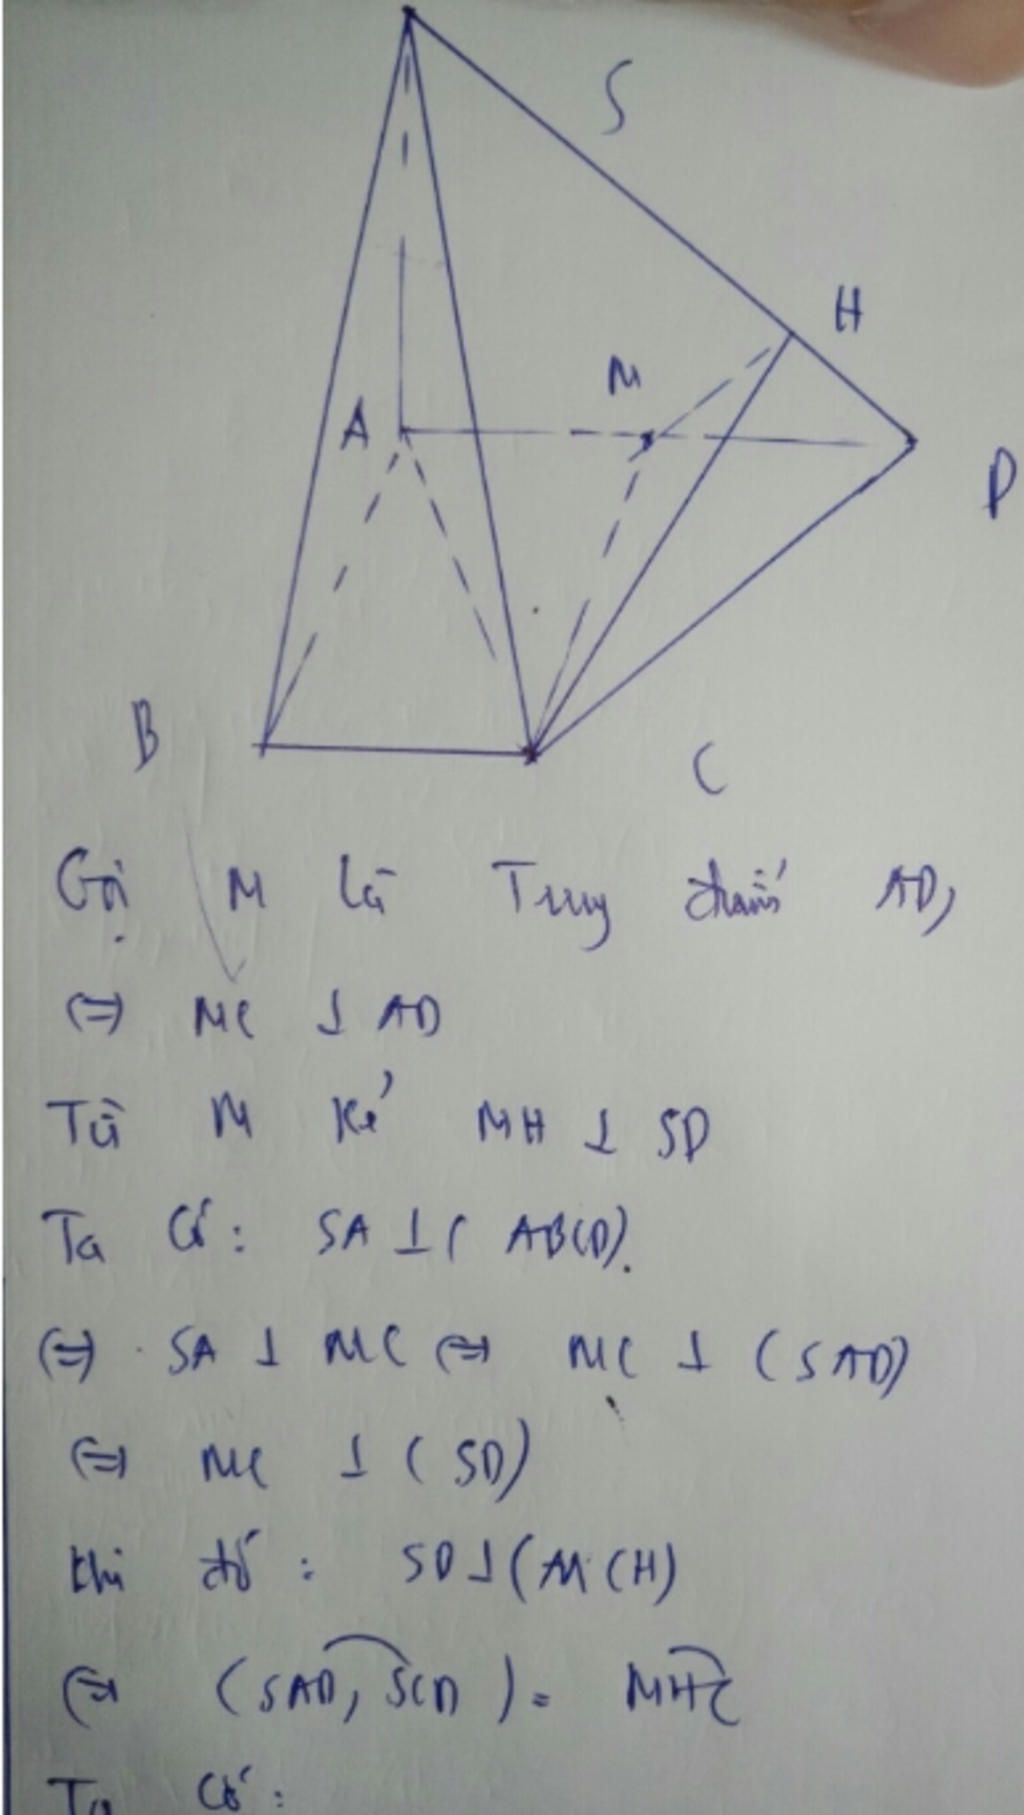 S
H
M
A
D
B
C
Gọi M là Trung điểm AD,
(=) MC ⊥ AD
Từ M kẻ MH ⊥ SD
Ta có: SA ⊥ ( ABCD).
(=) SA ⊥ MC (=) MC ⊥ (SAD)
(=) MC ⊥ (SD)
Khi đó : SD ⊥ (MCH)
(=) (SAD, SCD ) = MHC
Ta có :